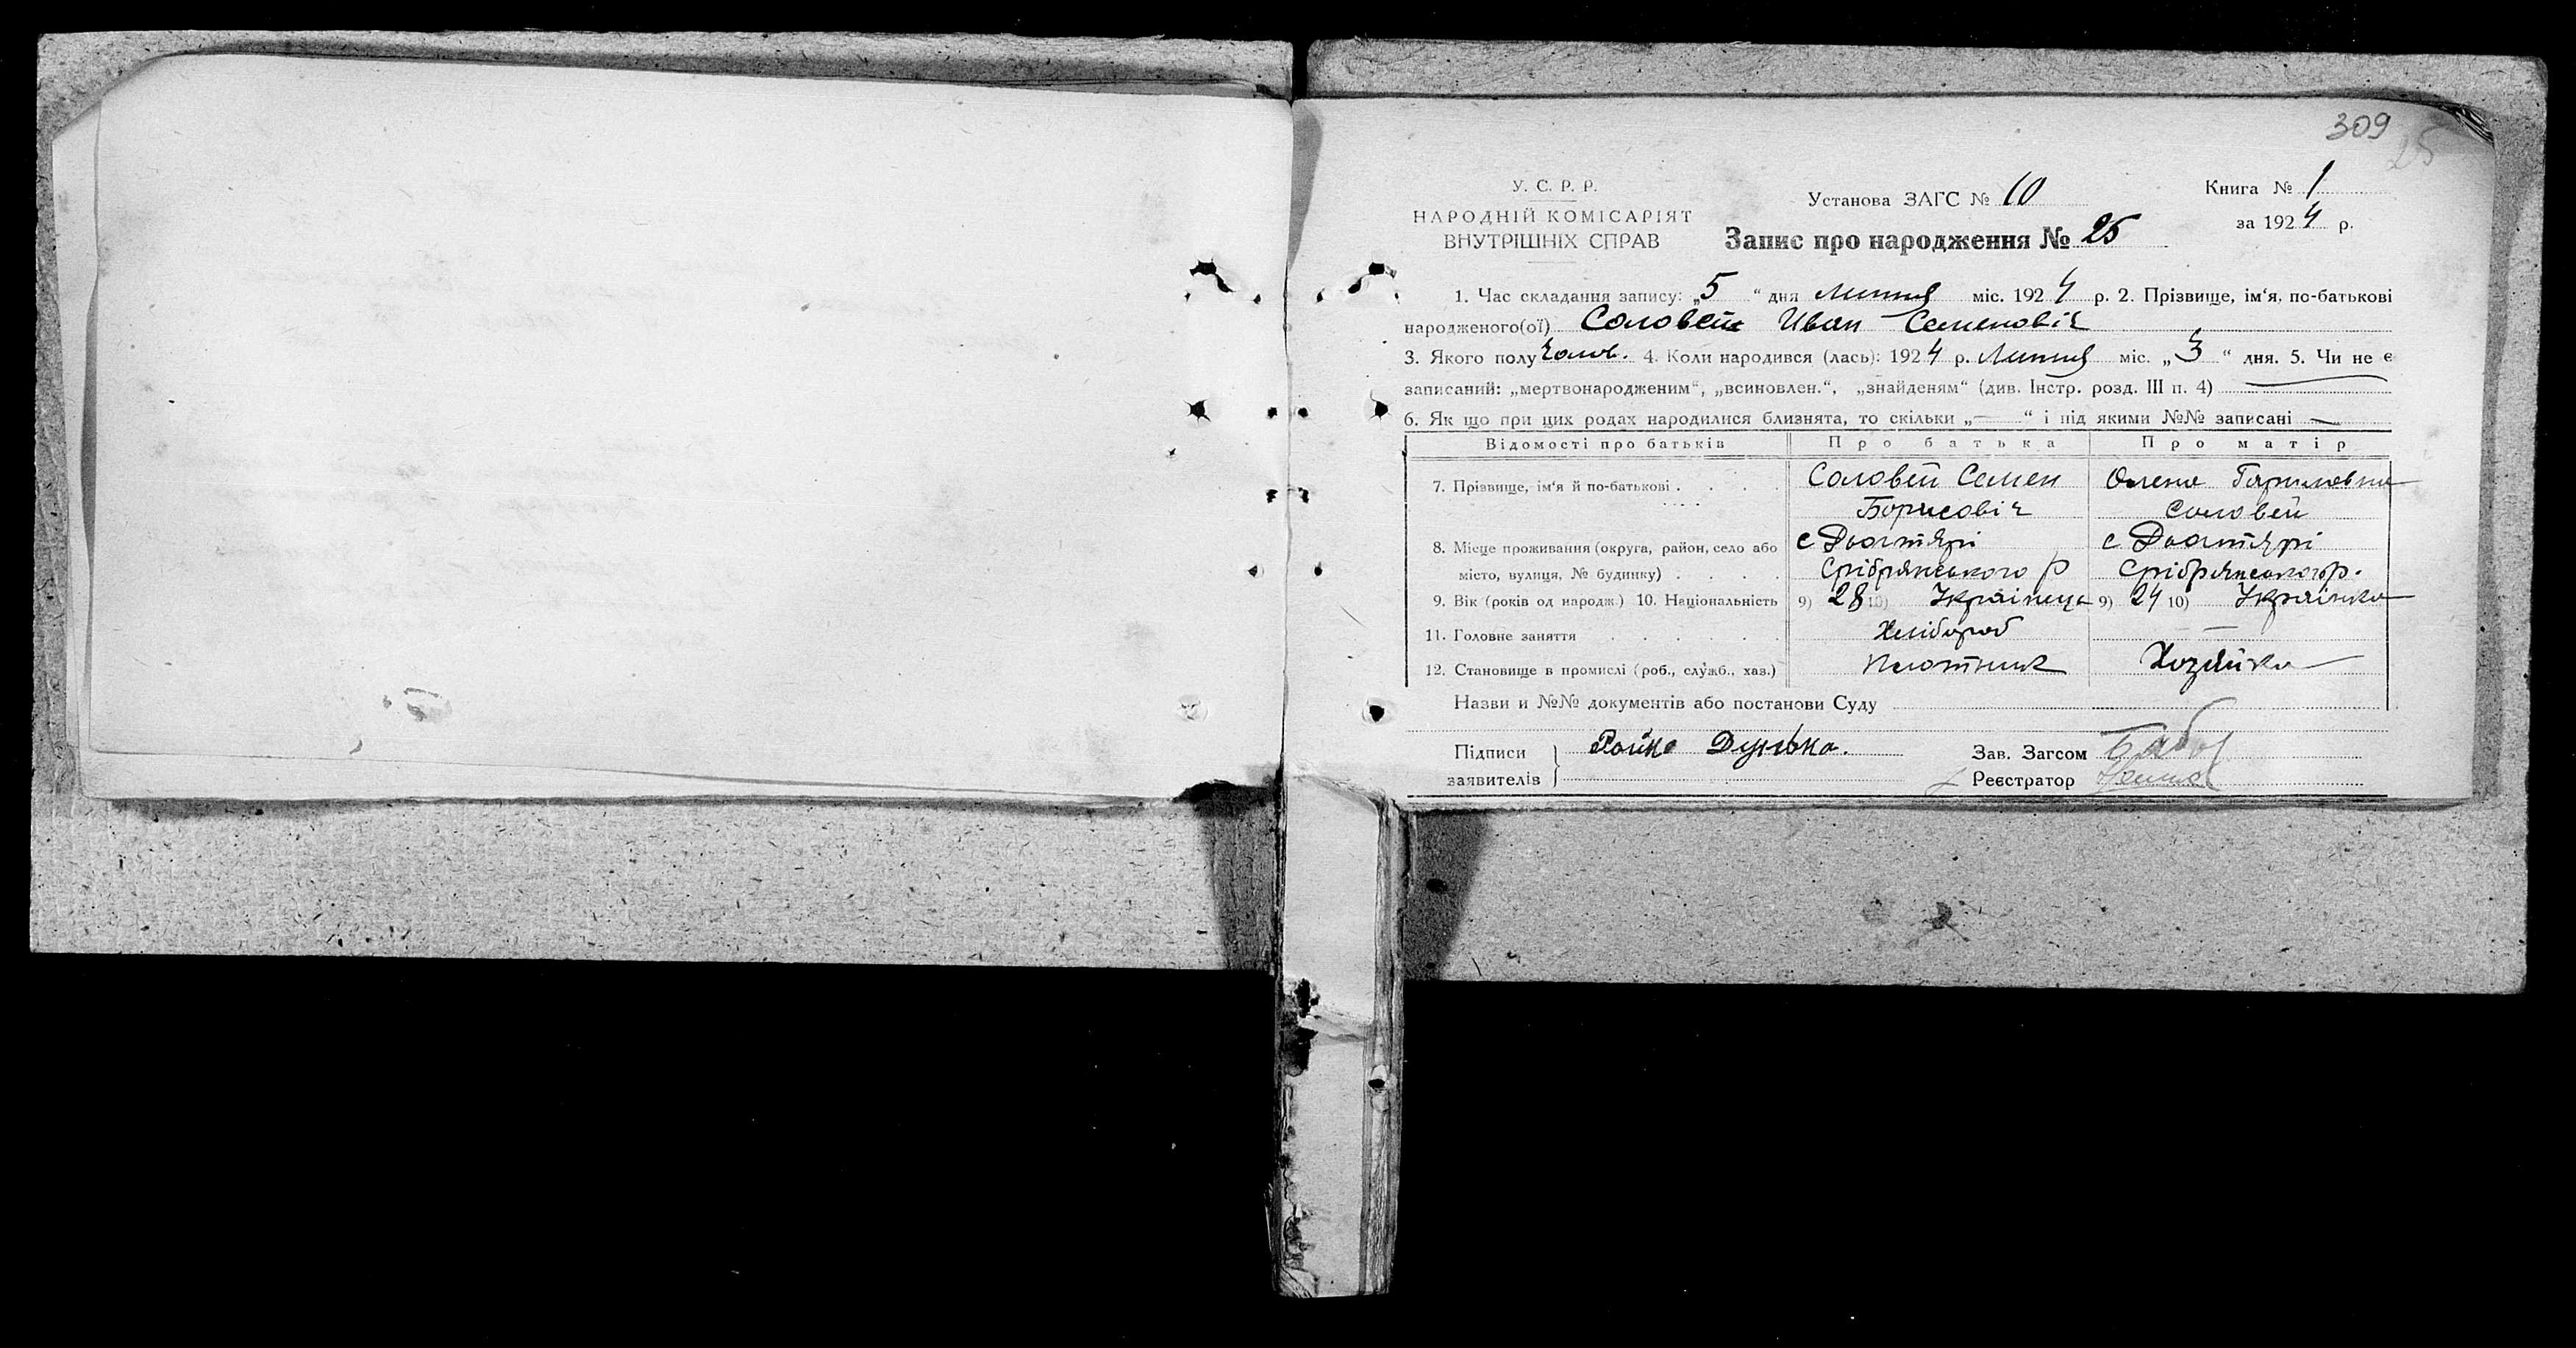 309
25
У. С. Р. Р.
НАРОДНІЙ КОМІСАРІЯТ
ВНУТРІШНІХ СПРАВ
Установа ЗАГС № 10
Запис про народження № 25
Книга № 1
за 1924 р.
1. Час складання запису: „5“ дня Липня міс. 1924 р. 2. Прізвище, ім‘я, по-батькові
народженого(ої) Соловей Иван Семеновіч
3. Якого полу Чолов. 4. Коли народився (лась): 1924 р. Липня міс. „3“ дня. 5. Чи не є
записаний: „мертвонародженим“, „всиновлен.“, „знайденям“ (див. Інстр. розд. III п. 4)
6. Як що при цих родах народилися близнята, то скільки „—“ і під якими №№ записані —
Відомості про батьків Про батька Про матір
7. Прізвище, ім‘я й по-батькові . . . . Соловей Семен Олена
Борисовіч Соловей
8. Місце проживання (округа, район, село або с Дьогтярі с Дьогтярі
місто, вулиця, № будинку) . . . . Срібрянського р Срібрянського р.
9. Вік (років од народж.) 10. Національність 9) 28 10) Українець 9) 24 10) Українка
11. Головне заняття . . . . . . Хлібороб —
12. Становище в промислі (роб., служб., хаз.) Плотник Хозяйка
Назви и №№ документів або постанови Суду
Підписи
заявителів
Дунька.
Зав. Загсом
Реєстратор